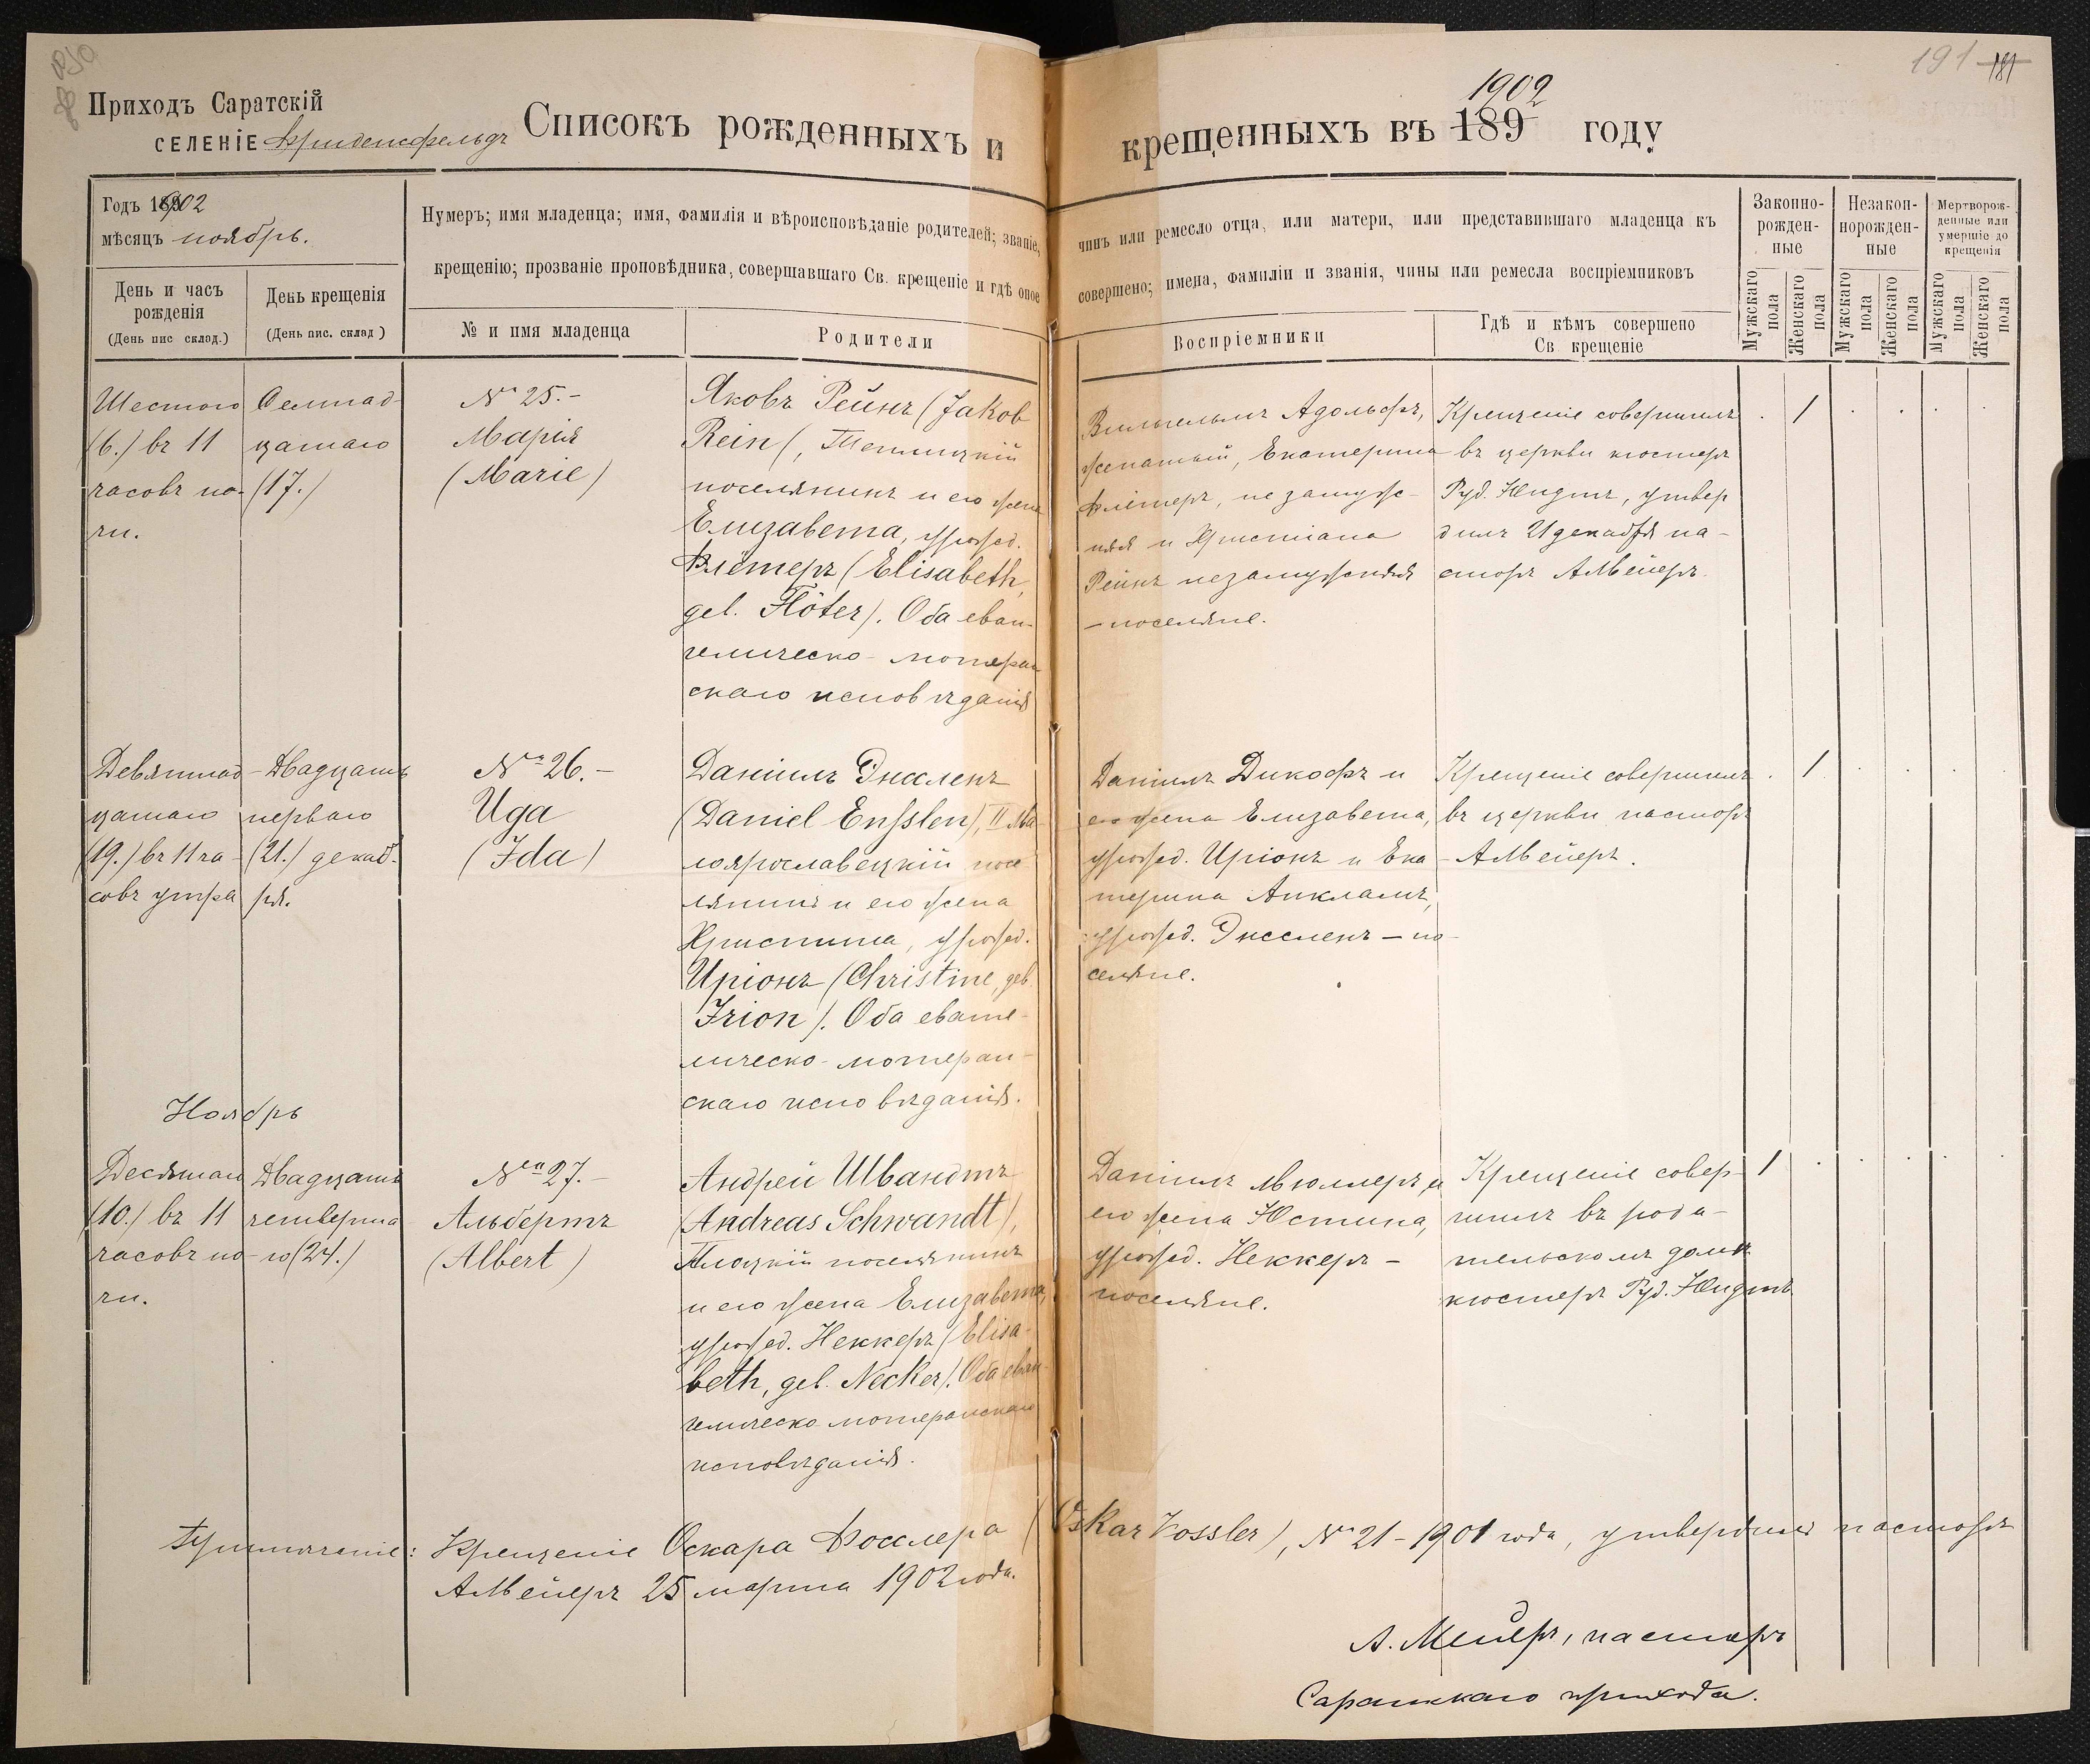 191 181
Приходъ Саратскій
СЕЛЕНІЕ Фриденсфельдъ
Списокъ рожденныхъ и крещенныхъ въ 189 1902 году
Годъ 1902
мѣсяцъ ноябрь.
День и часъ
рожденія
(День пис. склад.)
День крещенія
(День пис. склад)
Нумеръ; имя младенца; имя, фамилія и вѣроисповѣданіе родителей; званіе, чинъ или ремесло отца, или матери, или представившаго младенца къ
крещенію; прозваніе проповѣдника, совершавшаго Св. крещеніе и гдѣ оное совершено; имена, фамиліи и званія, чины или ремесла воспріемниковъ
№ и имя младенца
Родители
Воспріемники
Гдѣ и кѣмъ совершено
Св крещеніе
Законно-
рожден-
ные
Незакон-
норожден-
ные
Мертворож-
денные или
умершіе до
крещенія
Мужскаго пола
Женскаго пола
Мужскаго пола
Женскаго пола
Мужскаго пола
Женскаго пола
Шестого
(6.) въ 11
часовъ но-
чи.
Семнад-
цатаго
(17.)
№ 25.-
Марія
(Marie)
Яковъ Рейнъ (Jakob
Rein), Теплицкій
поселянинъ и его жена
Елизавета, урожд.
Флётеръ (Elisabeth,
geb. Flöter). Оба еван-
гелическо-лютеран
скаго исповѣданія
Вильгельмъ Адольфъ,
женатый, Екатерина
Флётеръ, незамуж-
няя и Христіана
Рейнъ незамужняя
- поселяне.
Крещеніе совершилъ
въ церкви кюстеръ
Руд. Юндтъ, утвер
дилъ 21 декабря па-
сторъ А Мейеръ.
. 1 . . . .
Девятнад-
цатаго
(19.) въ 11 ча-
совъ утра
Двадцать
перваго
(21.) декаб-
ря.
№ 26.-
Ида
(Ida)
Даніилъ Энсленъ
(Daniel Enßlen), II Ма-
лоярославецкій посе
лянинъ и его жена
Христина, урожд.
Иріонъ (Christine, geb.
Irion). Оба еванге-
лическо-лютеран-
скаго исповѣданія.
Даніилъ Дикофъ и
его жена Елизавета,
урожд. Иріонъ и Ека-
терина Анкламъ,
урожд. Энсленъ - по-
селяне.
Крещеніе совершилъ
въ церкви пасторъ
А Мейеръ.
. 1 . . . .
Ноябрь
Десятаго
(10.) въ 11
часовъ но-
чи.
Двадцать
четверта-
го (24.)
№ 27.-
Альбертъ
(Albert)
Андрей Швандтъ
(Andreas Schwandt),
Плоцкій поселянинъ
и его жена Елизавета,
урожд. Неккеръ (Elisa-
beth, geb. Necker). Оба еван-
гелическо лютеранскаго
исповѣданія.
Даніилъ Мюллеръ и
его жена Юстина,
урожд. Неккеръ -
поселяне.
Крещеніе совер-
шилъ въ роди-
тельскомъ домѣ
кюстеръ Руд. Юндтъ
1 . . . . .
Примѣчаніе: Крещеніе Оскара Фосслера (Oskar Vossler), № 21-1901 года, утвердилъ пасторъ
А Мейеръ 25 марта 1902 года.
А. Мейеръ, пасторъ
Саратскаго прихода.